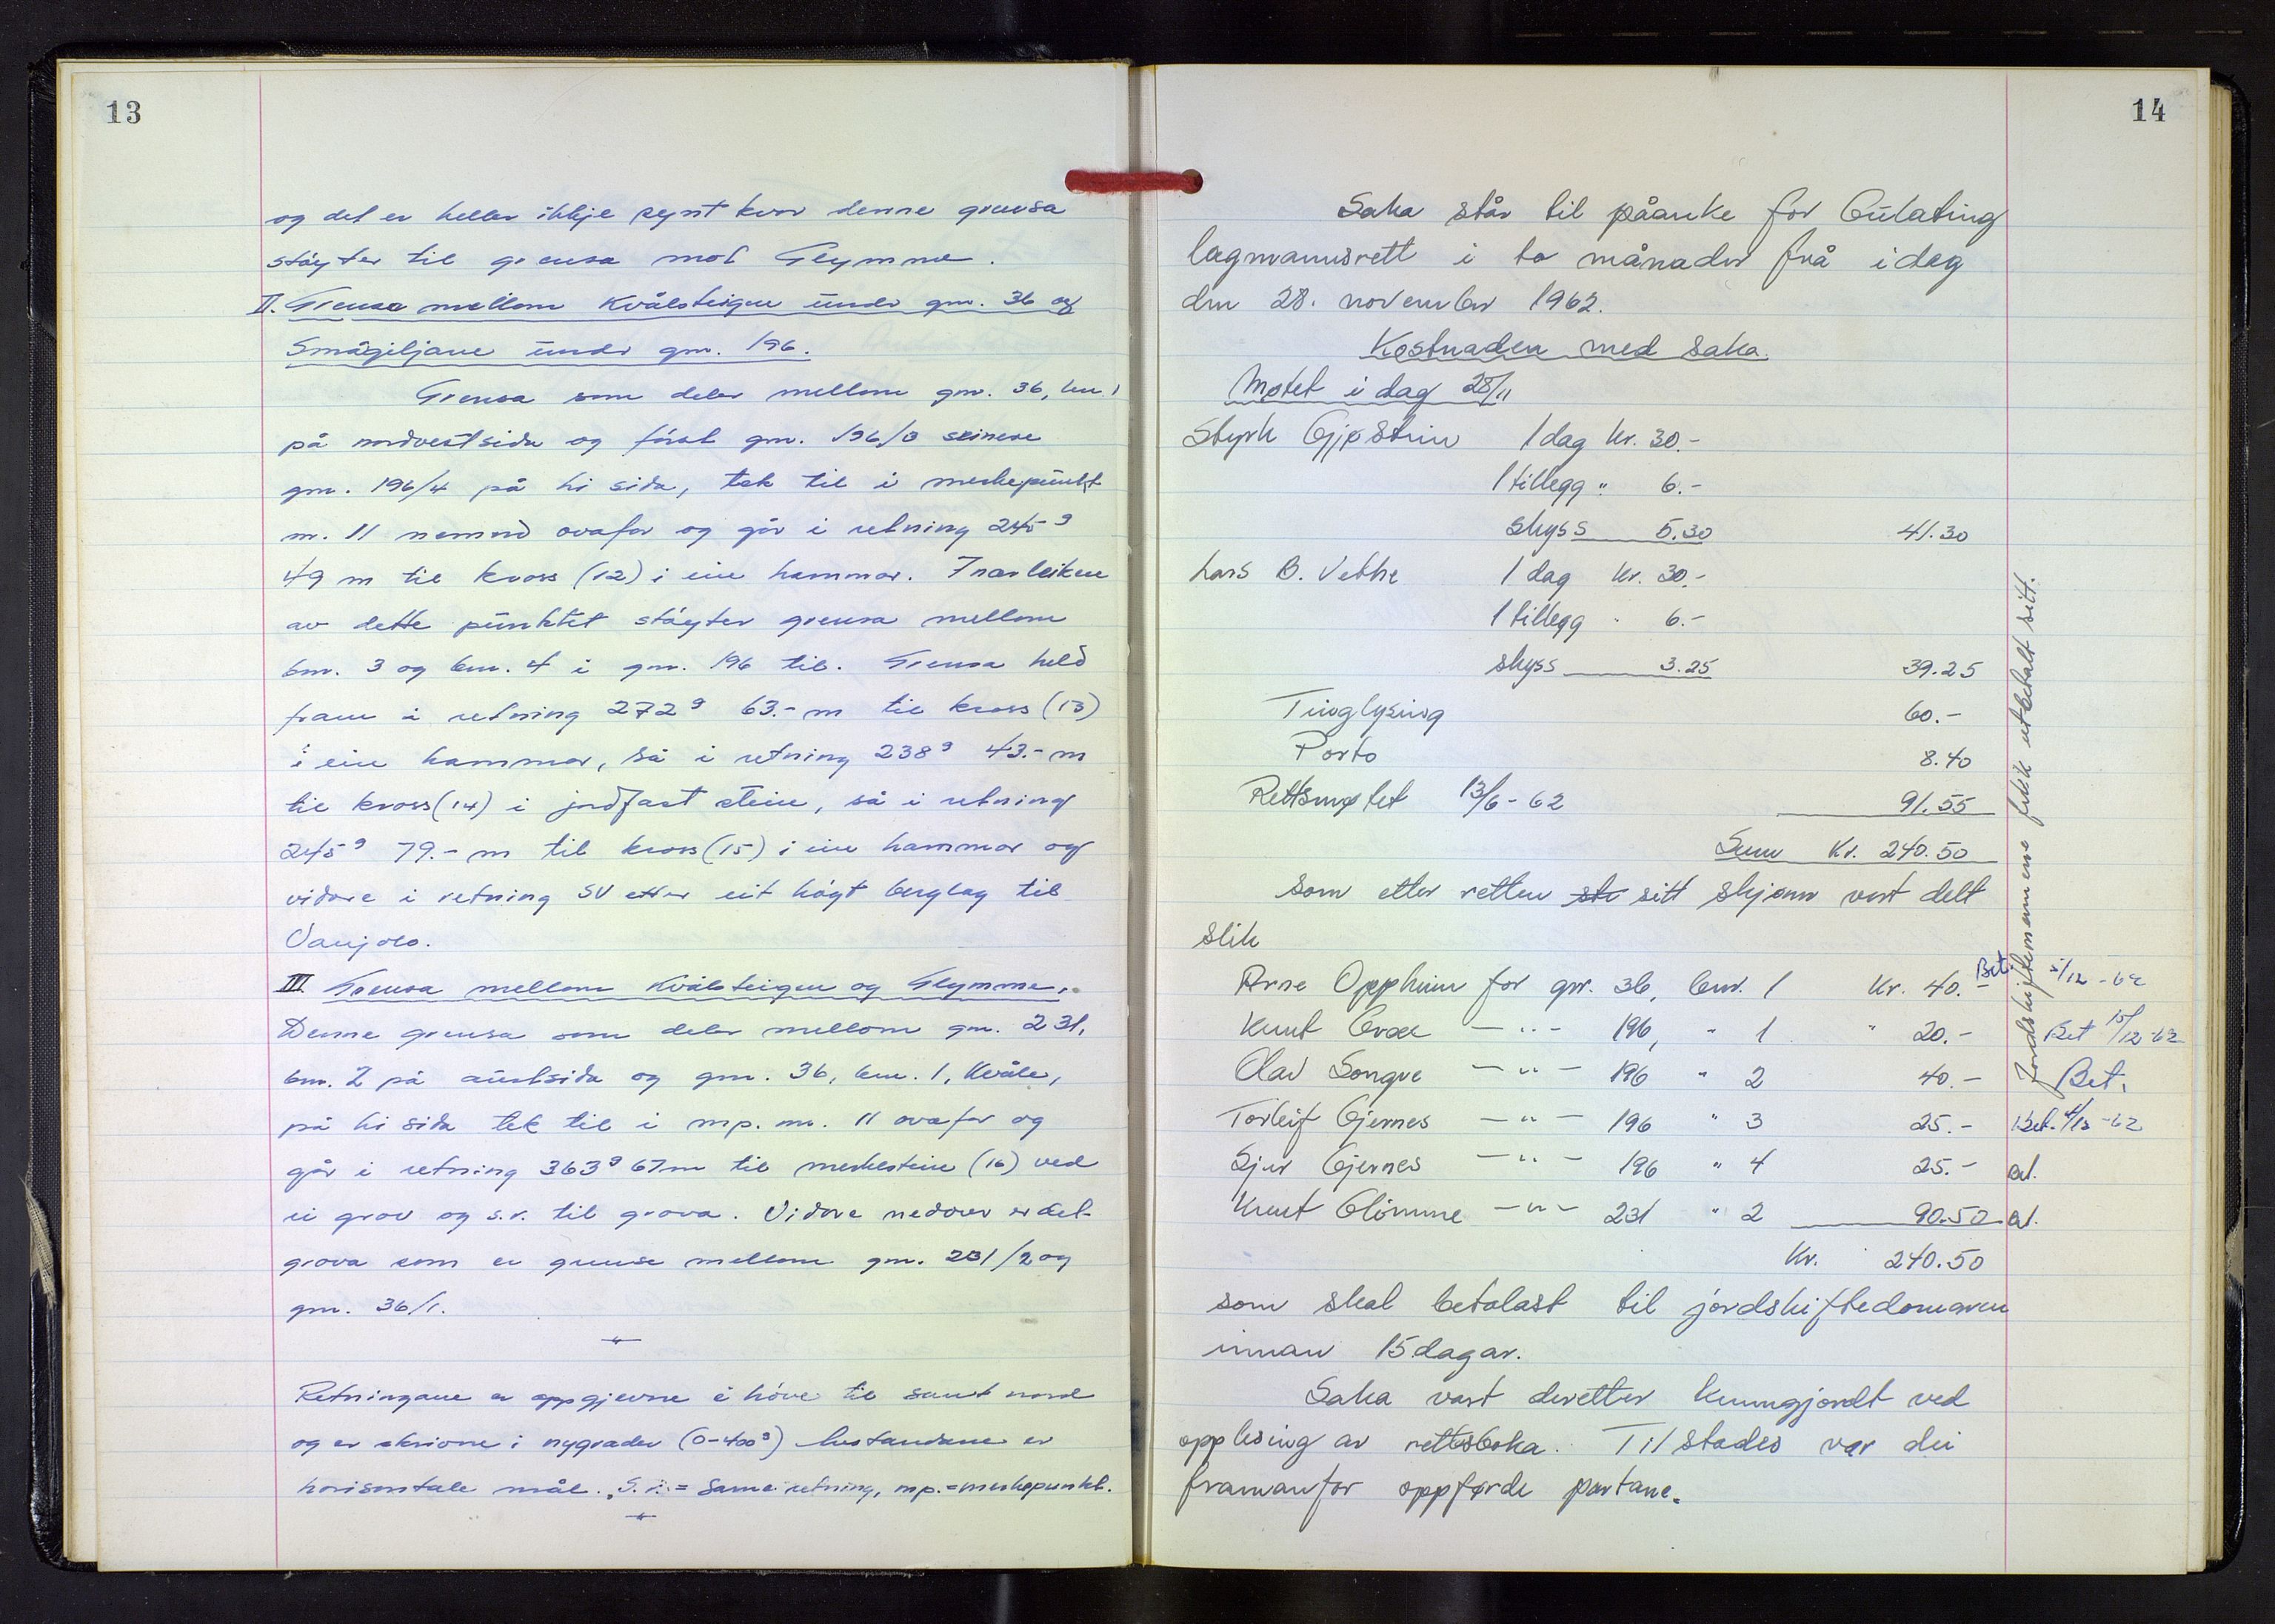 13
og det er heller ikkje synt kvar denne grensa
støyter til grensa mot Glymme.
II. Grensa mellom Kvålsteigen under gnr. 36 og
Smågiljane under gnr. 196.
Grensa som deler mellom gnr. 36, bnr. 1
på nordvestsida og først gnr. 196/3 seinere
gnr. 196/4 på hi sida, tek til i merkepunkt
nr. 11 nemnd ovafor og går i retning 245 g
49 m til kross (12) i ein hammar. I nærleiken
av dette punktet støyter grensa mellom
bnr. 3 og bnr. 4 i gnr. 196 til. Grensa held
fram i retning 272 g 63.- m til kross (13)
i ein hammar, så i retning 238 g 43.- m
til kross (14) i jordfast stein, så i retning
245 g 79.- m til kross (15) i ein hammar og
vidare i retning SV etter eit høgt berglag til
III Grensa mellom Kvålsteigen og Glymme.
Denne grensa som deler mellom gnr. 231,
bnr. 2 på austsida og gnr. 36, bnr. 1, Kvåle,
på hi sida tek til i mp. nr. 11 ovafor og
går i retning 363 g 67 m til merkestein (16) ved
ei grov og s.r. til grova. Vidare nedover er det
grova som er grense mellom gnr. 231/2 og
gnr. 36/1.
Retningane er oppgjevne i høve til sant nord
og er skrivne i nygrader (0-400 g) Avstandane er
horisontale mål. S.r. = Same retning, mp. = merkepunkt.
14
Saka står til påanke for Gulating
lagmannsrett i to månader frå idag
den 28. november 1962.
Kostnaden med saka.
Møtet i dag 28/11
Styrk Gjøstein 1 dag kr. 30.-
1 tillegg " 6.-
skyss 5.30 41.30
Lars B. Vethe 1 dag kr. 30.-
1 tillegg " 6.-
skyss 3.25 39.25
Tinglysing 60.-
Porto 8.40
Rettsmøtet 13/6-62 91.55
Sum Kr. 240.50
som etter retten sitt skjønn vert delt
slik
Arne Oppheim for gnr. 36, bnr. 1 Kr. 40.- Bet. 5/12-62
Knut 196, " 1 " 20.- Bet 15/12-62
Olav Songve -"- 196 " 2 40.- Bet.
Torleif Gjernes -"- 196 " 3 25.- Bet. 4/12-62
Sjur Gjernes -"- 196 " 4 25.-
Knut Glømme -"- 231 " 2 90.50
Kr. 240.50
som skal betalast til jordskiftedomaren
innan 15 dagar.
Saka vart deretter kunngjordt ved
opplesing av rettsboka. Tilstades var dei
framanfor oppførde partane.
Jordskiftemennene fekk utbetalt sitt.